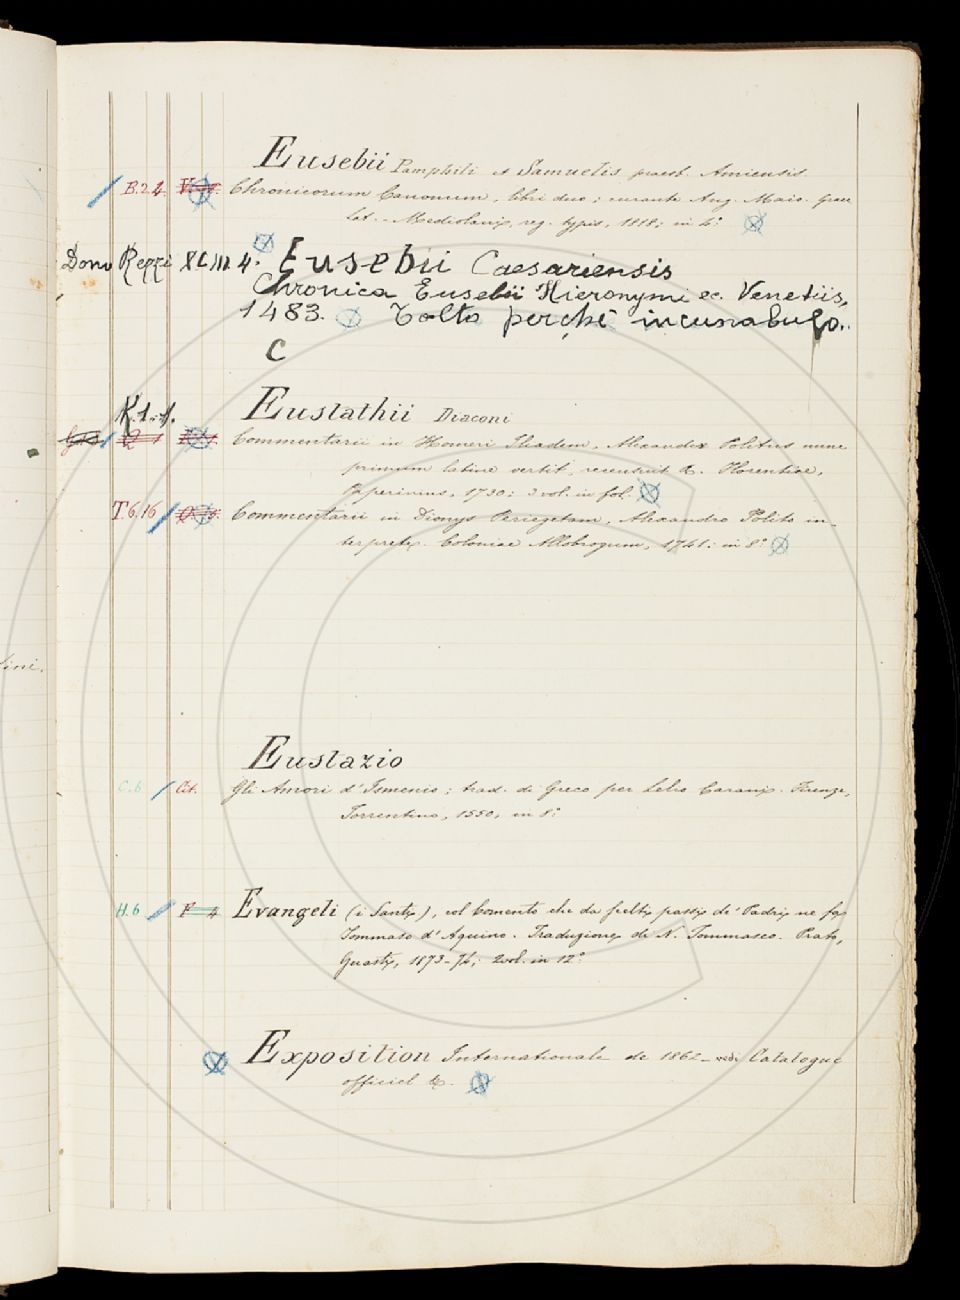 Eusebii Pamphili et Samuelis praesb. Aniensis
B.2.4. Chronicorum Canonum, libri duo; curante Ang. Maio. Graec.
lat. - Mediolani, reg. typis, 1818; in 4.°
Dono Reggi XC.III.4. Eusebii Caesariensis
Chronica Eusebii Hieronymi ec. Venetiis,
1483. Tolto perché incunabulo.
C
K.1.-1. Eustathii Diaconi
Commentarii in Homeri Iliadem, Alexander Politus nunc
primum latine vertit, recensuit &. Florentiae,
Paperinius, 1730; 3 vol. in fol.
T.6.16 Commentarii in Dionys Periegetam, Alexandro Polito in-
terprete. Coloniae Allobrogum, 1741; in 8.°
fini.
Eustazio
C.6 Cit. Gli Amori d'Ismenio; trad. di Greco per Lelio Carani. Firenze,
Torrentino, 1550, in 8.°
H.6 F 4 Evangeli (i Santi), col Comento che da scelti passi de' Padri ne fa
Tommaso d'Aquino. Traduzione di N. Tommaseo. Prato,
Guasti, 1873-74; 2 vol. in 12.°
Exposition Internationale de 1862 - vedi Catalogue
officiel &.